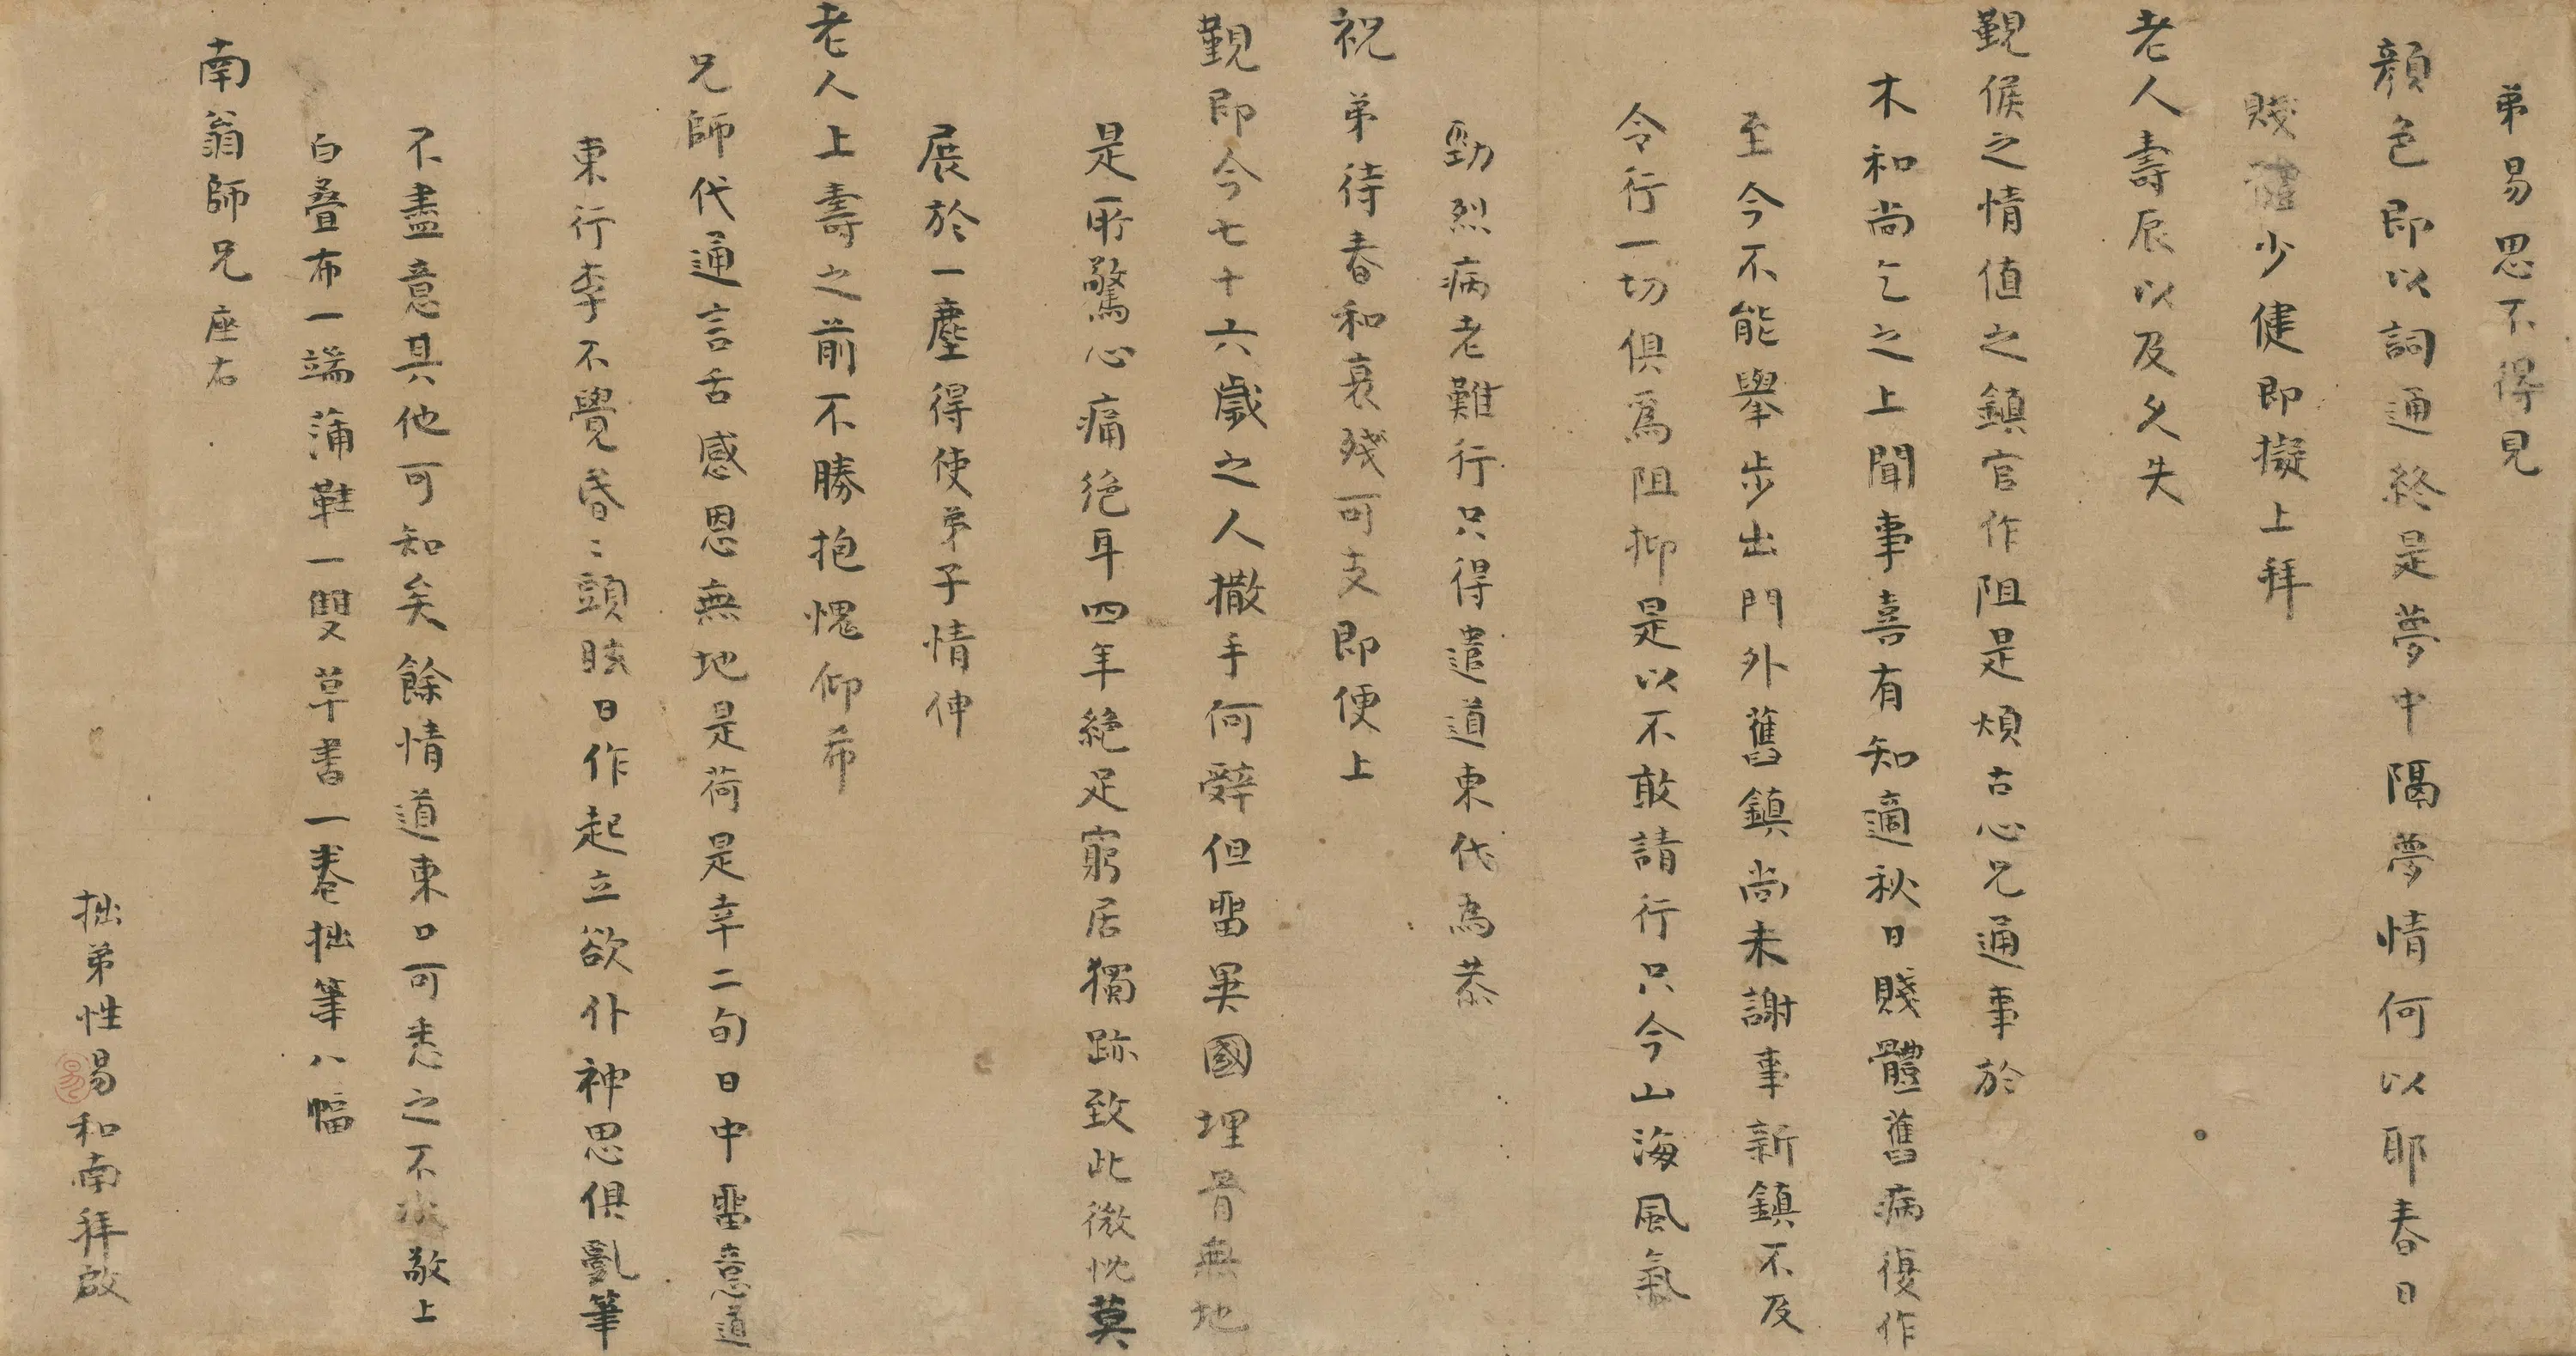 弟易思不得見
顏色即以詞通終是夢中隔夢情何以耶春日
賤體少健即擬上拜
老人壽辰以及久失
覲候之情值之鎮官作阻是煩古心兄通事於
木和尚乞之上聞事喜有知適秋日賤體舊病復作
至今不能舉步出門外舊鎮尚未謝事新鎮不及
令行一切俱爲阻抑是以不敢請行只今山海風氣
勁烈病老難行只得遣道東代為恭
祝弟待春和衰殘可支即便上
覲即今七十六歲之人撒手何辭但畱異國埋骨無地
是所驚心痛絕耳四年絕足窮居獨跡致此微忱莫
展於一塵得使弟子情伸
老人上壽之前不勝抱愧仰希
兄師代通言舌感恩無地是荷是幸二旬日中畱意道
東行李不覺昏〻頭眩日作起立欲仆神思俱亂筆
不盡意其他可知矣餘情道東口可悉之不敬上
白疊布一端蒲鞋一雙草書一卷拙筆八幅
南翁師兄座右
拙弟性易和南拜啟
易